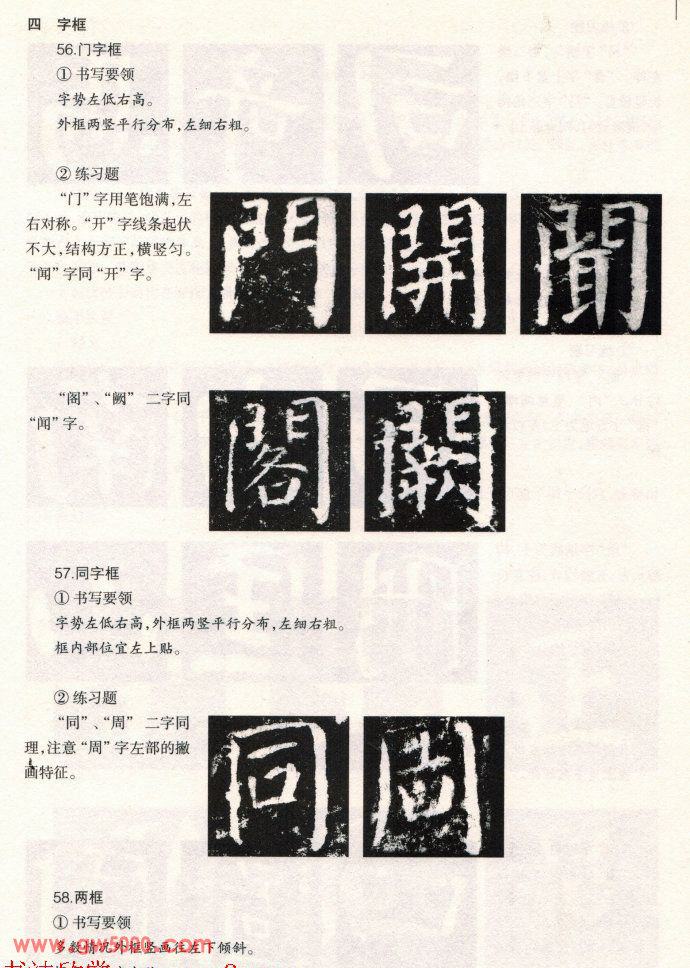 四 字框
56.门字框
① 书写要领
字势左低右高。
外框两竖平行分布,左细右粗。
② 练习题
“门”字用笔饱满,左
右对称。“开”字线条起伏
不大,结构方正,横竖匀。
“闻”字同“开”字。
門 開 聞
“阁”、“阙” 二字同
“闻”字。
閣 闕
57.同字框
① 书写要领
字势左低右高,外框两竖平行分布,左细右粗。
框内部位宜左上贴。
② 练习题
“同”、“周” 二字同
理,注意“周”字左部的撇
画特征。
同 周
58.两框
① 书写要领
多数情况外框竖画往左下倾斜。
www.gw5000.com
书法欣赏